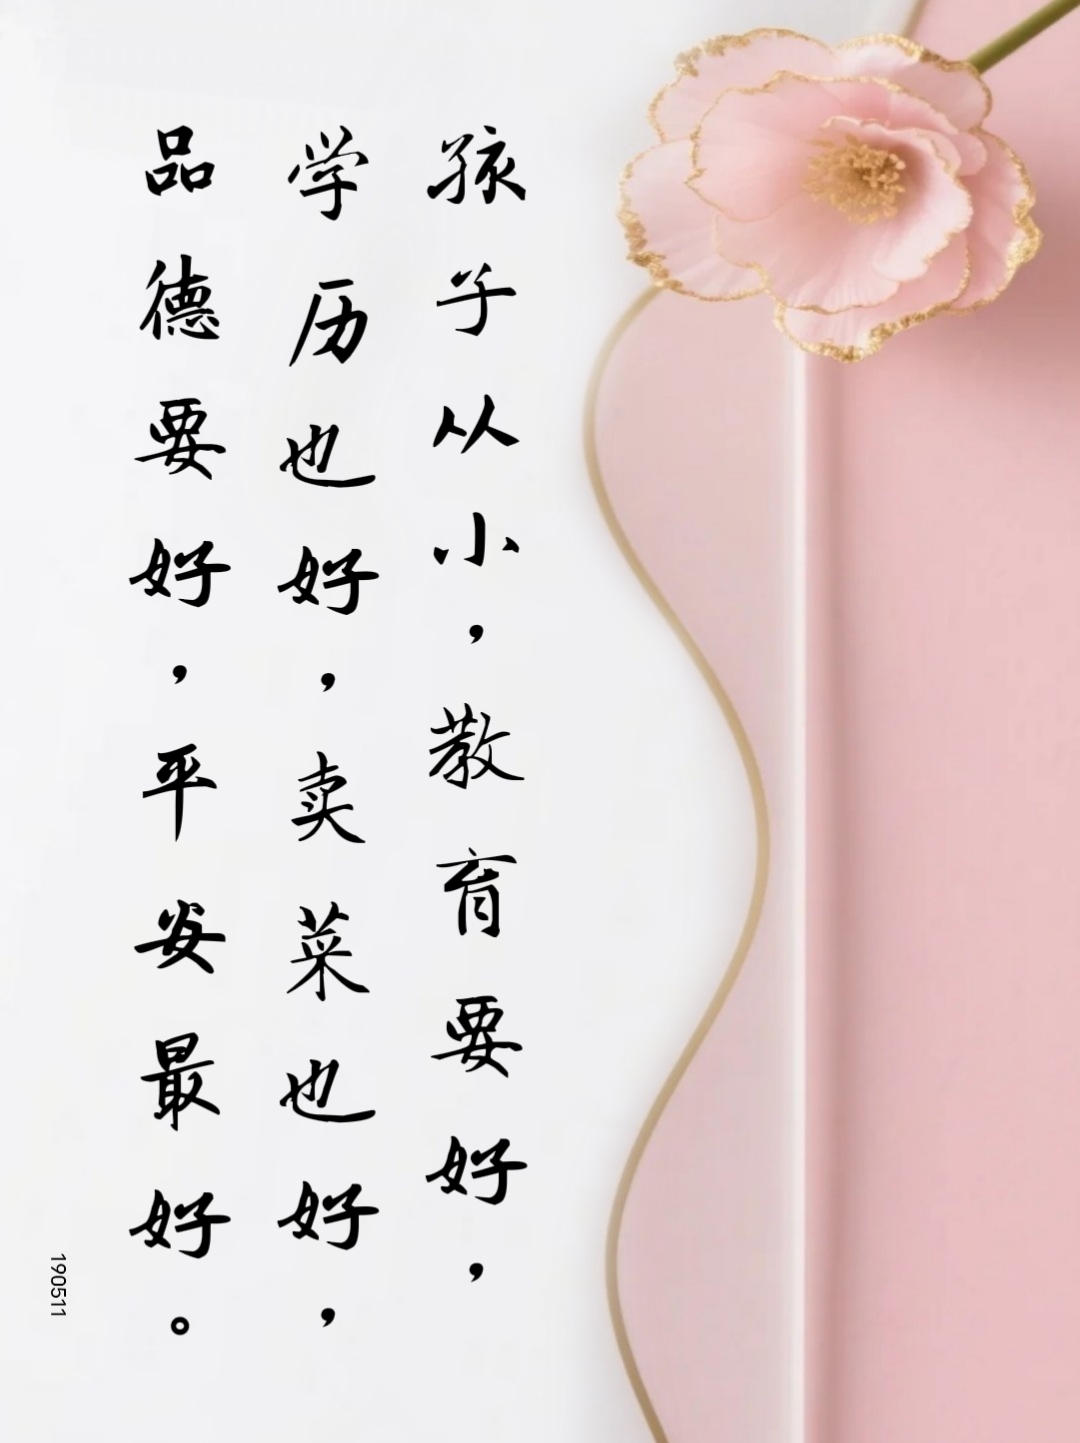 孩子从小，教育要好，
学历也好，卖菜也好，
品德要好，平安最好。
190511